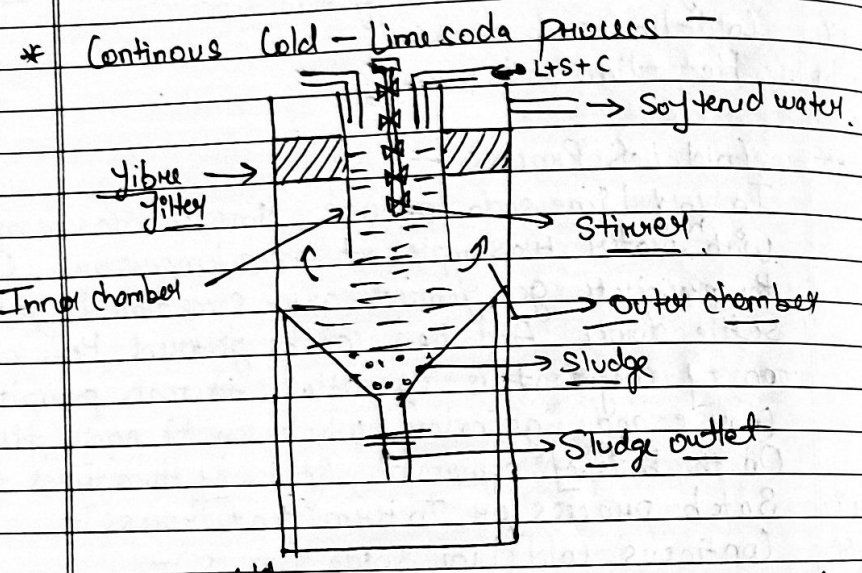 * Continous Cold - Lime soda process -
L+S+C
Softened water.
fibre
filter
Stirrer
Inner chamber
Outer chamber
Sludge
Sludge outlet